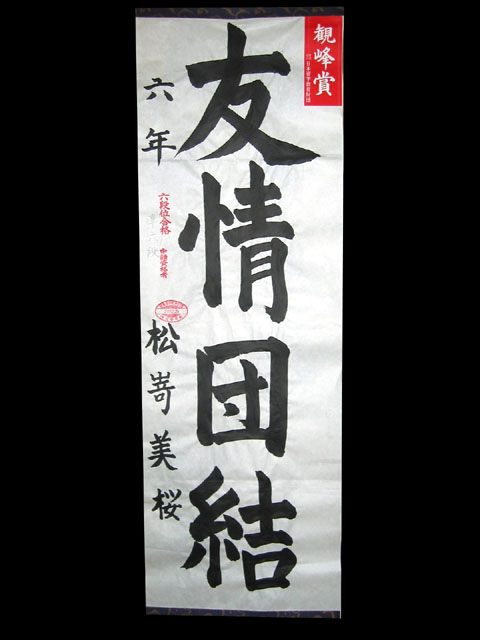 観峰賞
友情団結
六年
六段位合格
松嵜美桜